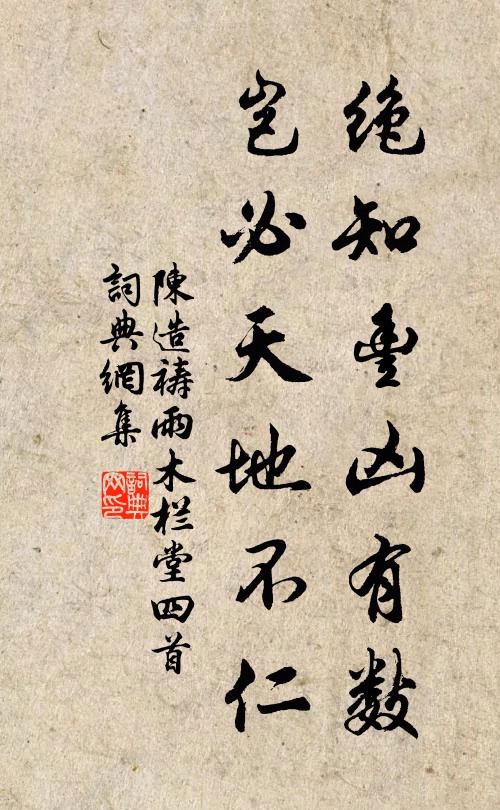 絶知豊凶有數
豈必天地不仁
陳造禱雨木栏堂四首
詞典網集
詞典網印